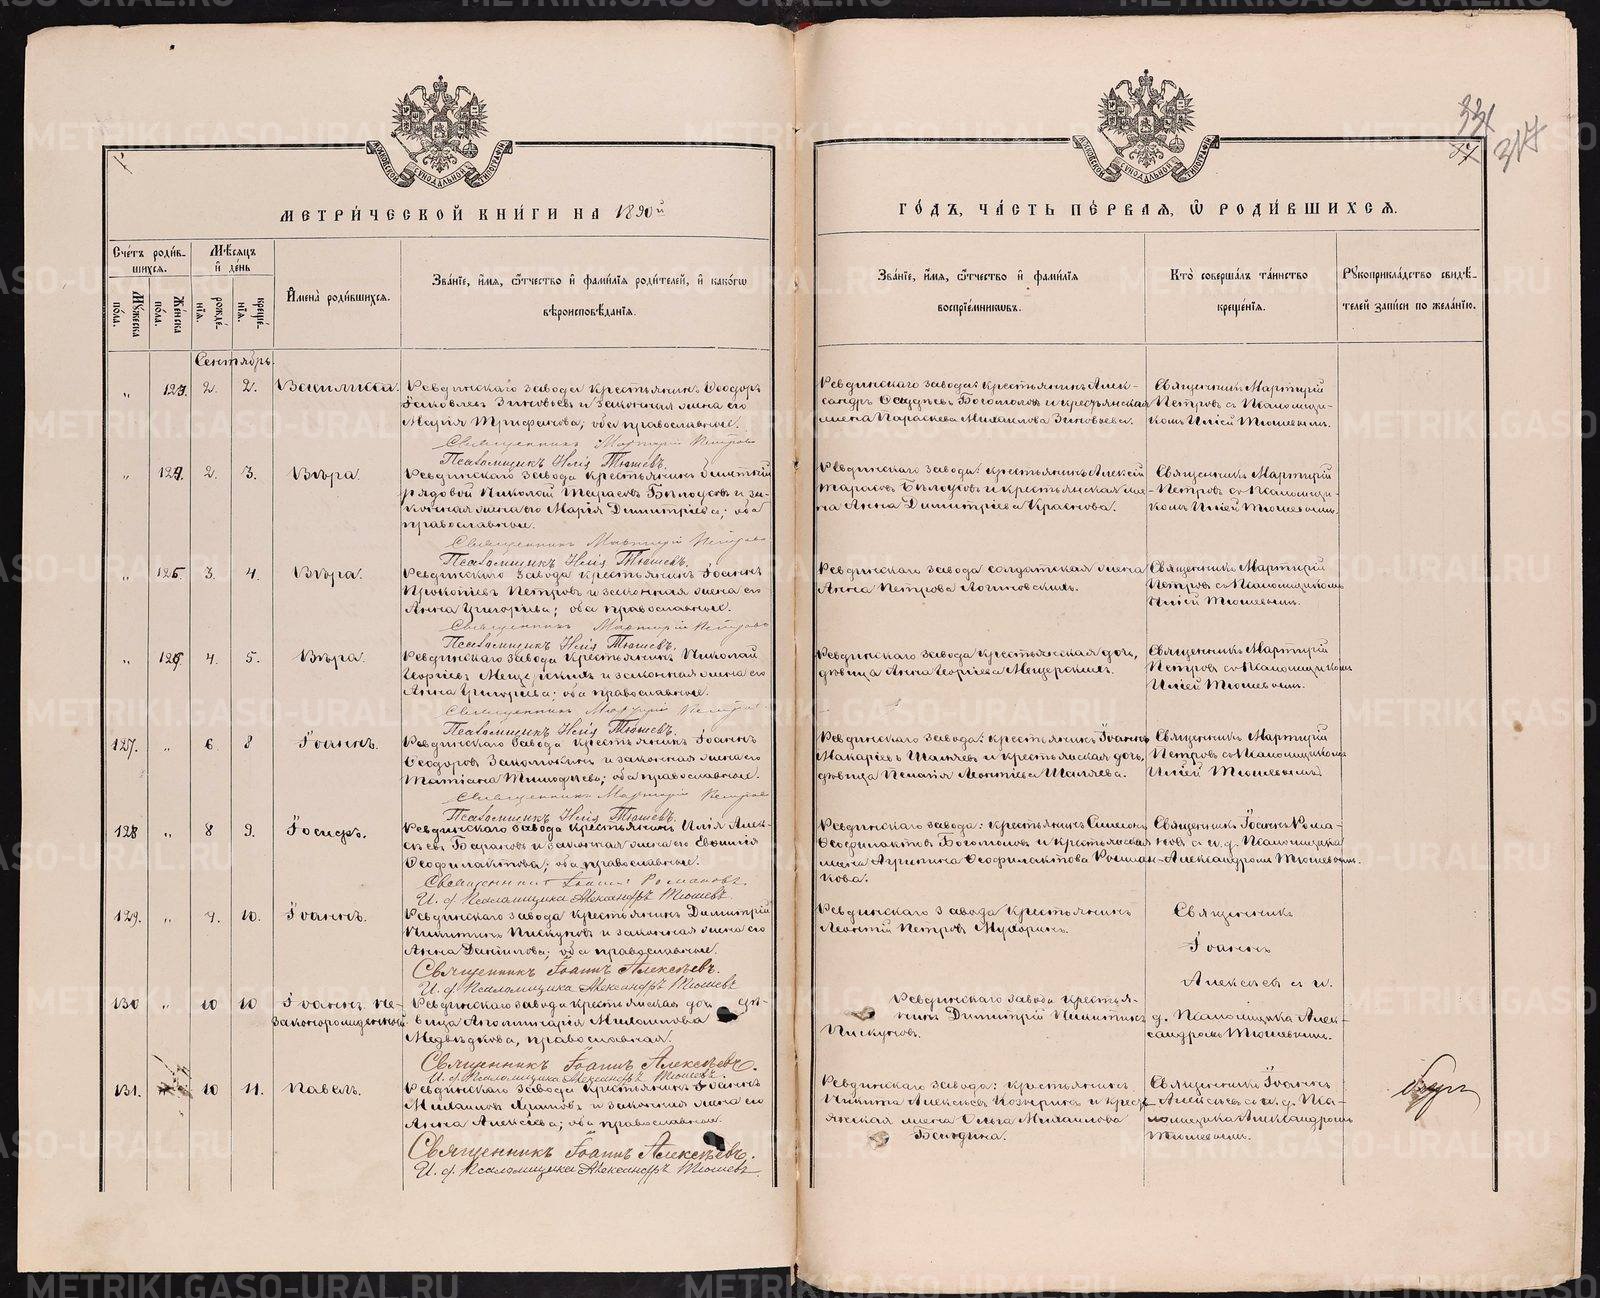 МЕТРИ́ЧЕСКОЙ КНИ́ГИ НА 1890й
Сче́тъ роди́в-
шихся.
Мѣсяцъ
и҆ де́нь
Мꙋ́жеска
по́ла.
Же́нска
по́ла.
рожде́-
нїѧ.
креще́-
нїѧ.
И҆мена̀ роди́вшихся.
Зва́нїе, и҆́мѧ, ѻ҆́тчество и҆ фами́лїѧ роди́телей, и҆ како́гѡ
вѣроисповѣ́данїѧ.
Сентябрь.
" 123. 2. 2. Василисса.
Ревдинскаго завода крестьянинъ Ѳеодоръ
Іаковлевъ Зиновьевъ и законная жена его
Марія Трифонова; оба православные.
Священникъ Мартирій Петровъ
Псаломщикъ Илія Тюшевъ.
" 124. 2. 3. Вѣра.
Ревдинскаго завода крестьянинъ
рядовой Николай Тарасовъ Бѣлоусовъ и за-
конная жена его Марія Димитріева; оба
православные.
Священникъ Мартирій Петровъ
Псаломщикъ Илія Тюшевъ.
" 125. 3. 4. Вѣра.
Ревдинскаго завода крестьянинъ Іоаннъ
Прокопіевъ Петровъ и законная жена его
Анна Григоріева; оба православные.
Священникъ Мартирій Петровъ
Псаломщикъ Илія Тюшевъ.
" 126. 4. 5. Вѣра.
Ревдинскаго завода крестьянинъ Николай
Георгіевъ Мещерскихъ и законная жена его
Анна Григоріева; оба православные.
Священникъ Мартирій Петровъ
Псаломщикъ Илія Тюшевъ.
127. " 6 8 Іоаннъ.
Ревдинскаго завода крестьянинъ Іоаннъ
Ѳеодоровъ и законная жена его
Татіана Тимоѳеева; оба православные.
Священникъ Мартирій Петровъ
Псаломщикъ Илія Тюшевъ.
128 " 8 9. Іосифъ.
Ревдинскаго завода крестьянинъ Илія Алек-
сѣевъ и законная жена его Евѳимія
Ѳеофилактова; оба православные.
Священникъ Іоаннъ Романовъ.
И. д. Псаломщика Александръ Тюшевъ.
129. " 7. 10. Іоаннъ.
Ревдинскаго завода крестьянинъ Димитрій
Никитинъ Пискуновъ и законная жена его
Анна Данилова; оба православные.
Священникъ Іоаннъ Алексѣевъ.
И. д. Псаломщика Александръ Тюшевъ
130 " 10 10 Іоаннъ не-
законорожденный
Ревдинскаго завода крестьянская дочь дѣ-
вица Аполлинарія Михаилова
Медвѣдкова, православная.
Священникъ Іоаннъ Алексѣевъ.
И. д. Псаломщика Александръ Тюшевъ.
131. 10 11. Павелъ.
Ревдинскаго завода крестьянинъ Іоаннъ
Михаиловъ и законная жена его
Анна Алексѣева; оба православные.
Священникъ Іоаннъ Алексѣевъ.
И. д. Псаломщика Александръ Тюшевъ
ГО́ДЪ, ЧА́СТЬ ПЕ́РВАЯ, Ѡ҆ РОДИ́ВШИХСЯ.
Зва́нїе, и҆́мѧ, ѻ҆́тчество и҆ фами́лїѧ
воспрїе́мникѡвъ.
Кто̀ соверша́лъ та́инство
креще́нїѧ.
Рꙋкоприкла́дство свидѣ́-
телей за́писи по жела́нїю.
Ревдинскаго завода: крестьянинъ Алек-
сандръ Богомоловъ и крестьянская
жена Параскева Михаилова Зиновьева.
Священникъ Мартирій
Петровъ съ Псаломщи-
комъ Иліей Тюшевымъ.
Ревдинскаго завода: крестьянинъ Алексій
Тарасовъ Бѣлоусовъ и крестьянская же-
на Анна Димитріева Краснова.
Священникъ Мартирій
Петровъ съ Псаломщи-
комъ Иліей Тюшевымъ.
Ревдинскаго завода солдатская жена
Анна Петрова Логиновскихъ.
Священникъ Мартирій
Петровъ съ Псаломщикомъ
Иліей Тюшевымъ.
Ревдинскаго завода крестьянская дочь,
дѣвица Анна Георгіева Мещерскихъ.
Священникъ Мартирій
Петровъ съ Псаломщикомъ
Иліей Тюшевымъ.
Ревдинскаго завода: крестьянинъ Іоаннъ
Макаріевъ Шаляевъ и крестьянская дочь,
дѣвица Пелагія Леонтіева Шаляева.
Священникъ Мартирій
Петровъ съ Псаломщикомъ
Иліей Тюшевымъ.
Ревдинскаго завода: крестьянинъ Симеонъ
Ѳеофилактовъ Богомоловъ и крестьянская
жена Агрипина Ѳеофилактова Росман-
кова.
Священникъ Іоаннъ Рома-
новъ съ и. д. Псаломщика
Александромъ Тюшевымъ.
Ревдинскаго завода крестьянинъ
Леонтій Петровъ Мухоринъ.
Священникъ
Іоаннъ
Алексѣевъ съ и.
Ревдинскаго завода крестья-
нинъ Димитрій Никитинъ
Пискуновъ.
д. Псаломщика Алек-
сандромъ Тюшевымъ.
Ревдинскаго завода: крестьянинъ
Никита Алексѣевъ и кресть-
янская жена Ольга Михаилова
Священникъ Іоаннъ
Алексѣевъ съ и. д. Пса-
ломщика Александромъ
Тюшевымъ.
METRIKI.GASO-URAL.RU